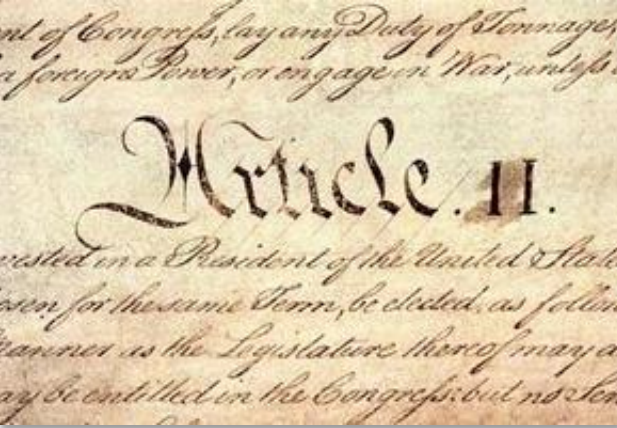 nt of Congress, lay any Duty of Tonnage,
a foreign Power, or engage in War, unless
Article. II.
vested in a President of the United State
osen for the same Term, be elected, as follow
Manner as the Legislature thereof may a
ay be entitled in the Congress: but no Sen